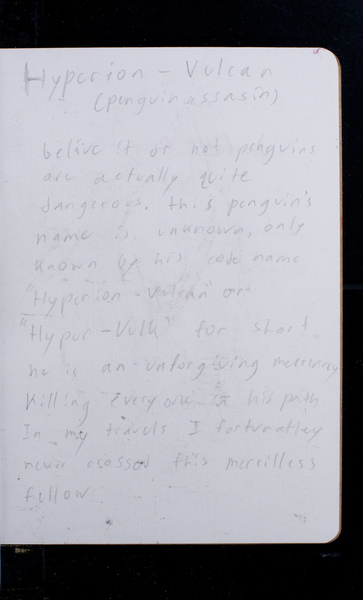 Hyperion - Vulcan
(penguin assasin)
belive it or not penguins
are actually quite
dangerous. this penguin's
name is unknown, only
known by his code name
"Hyperion - Vulcan" or
"Hyper - Vulk" for short
he is an unforgiving mercenary
Killing everyone in his path
In my travels I fortunatley
never crossed this merciless
fellow.